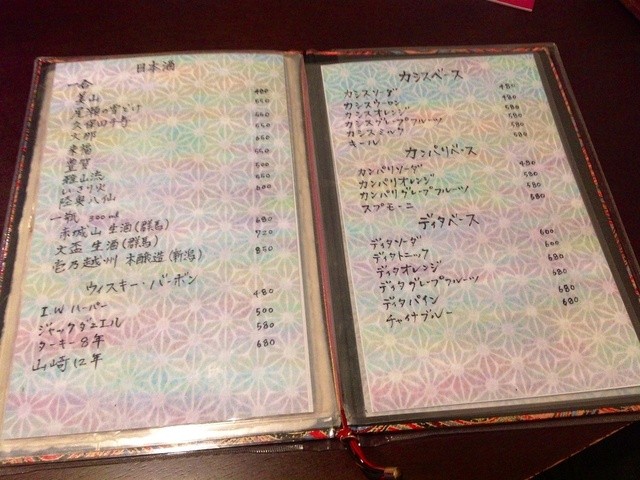 日本酒
一合
美山 480
尾瀬の雪どけ 550
久保田千寿 550
大那 550
東陽 650
豊賀 550
雅山流 500
いさり火 650
陸奥八仙 600
一瓶 300ml
赤城山 生酒(群馬) 680
文盃 生酒(群馬) 720
壱乃越州 本醸造(新潟) 850
ウィスキー・バーボン
I.W ハーパー 480
ジャックダニエル 500
ターキー8年 580
山崎12年 680
カシスベース
カシスソーダ 480
カシスウーロン 480
カシスオレンジ 580
カシスグレープフルーツ 580
カシスミルク 580
キール 580
カンパリベース
カンパリソーダ 480
カンパリオレンジ 580
カンパリグレープフルーツ 580
スプモーニ 680
ディタベース
ディタソーダ 600
ディタトニック 600
ディタオレンジ 680
ディタグレープフルーツ 680
ディタパイン 680
チャイナブルー 680